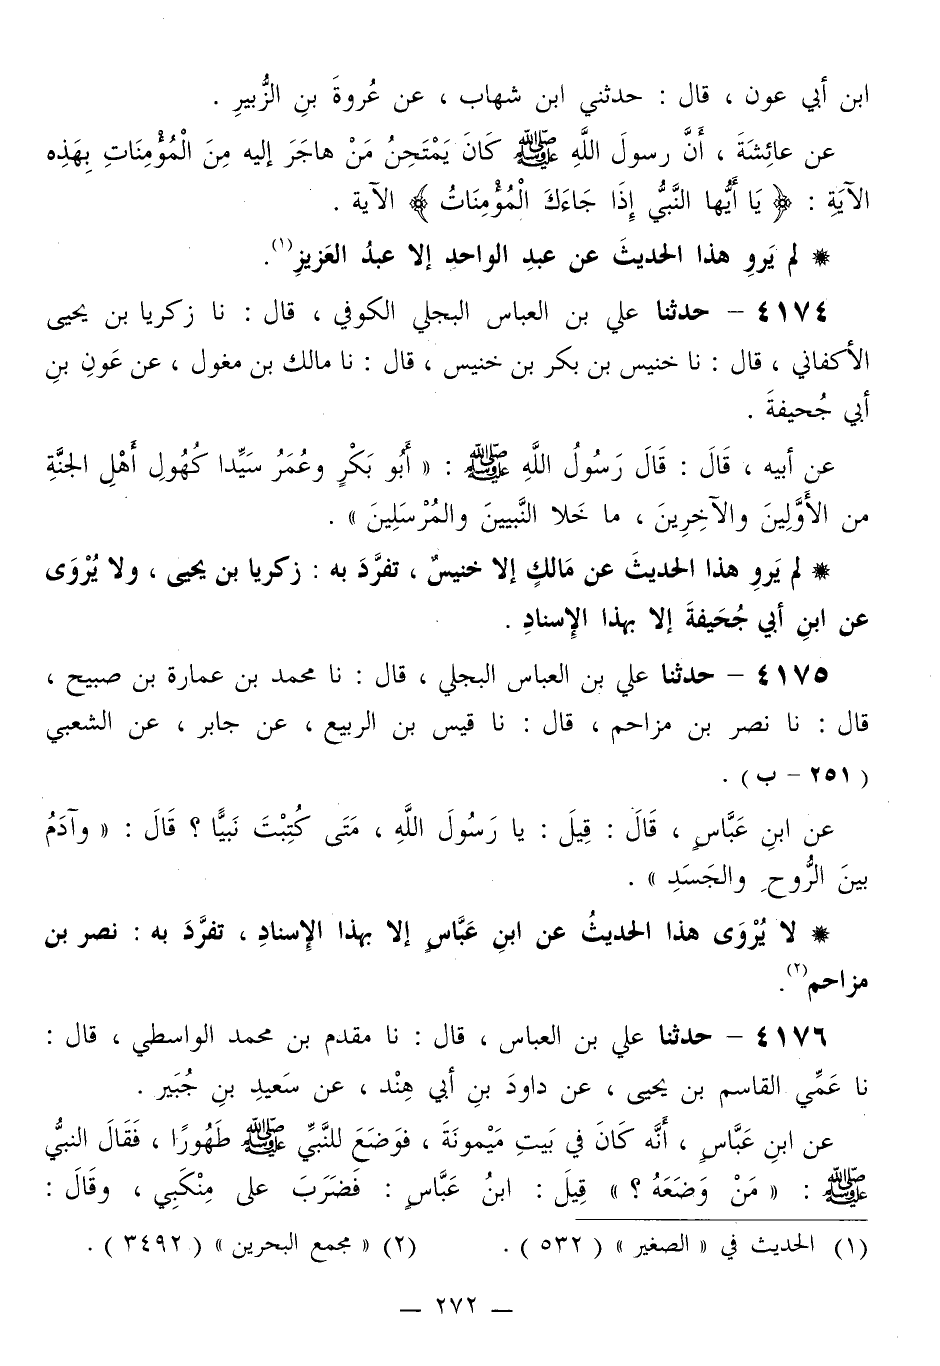 ابن أبي عون ، قال : حدثني ابن شهاب ، عن عُروةَ بنِ الزُّبيرِ .
عن عائِشَةَ ، أَنَّ رسولَ اللَّهِ ﷺ كَانَ يَمْتَحِنُ مَنْ هاجَرَ إليه مِنَ الْمُؤْمِنَاتِ بِهَذِه
الآيَةِ : ﴿ يَا أَيُّها النَّبيُّ إِذَا جَاءَكَ الْمُؤْمِنَاتُ ﴾ الآية .
* لم يَروِ هذا الحديثَ عن عبدِ الواحدِ إلا عبدُ العَزيزِ(١).
٤١٧٤ – حدثنا علي بن العباس البجلي الكوفي ، قال : نا زكريا بن يحيى
الأكفاني ، قال : نا خنيس بن بكر بن خنيس ، قال : نا مالك بن مغول ، عن عَونِ بنِ
أبي جُحيفةَ .
عن أبيه ، قَالَ : قَالَ رَسُولُ اللَّهِ ﷺ : « أَبُو بَكْرٍ وعُمَرُ سَيِّدا كُهُولِ أَهْلِ الجنَّةِ
من الأَوَّلِينَ والآخِرِينَ ، ما خَلا النَّبيينَ والمُرْسَلِينَ » .
* لم يَروِ هذا الحديثَ عن مَالكٍ إلا خنيسٌ ، تفرَّدَ به : زكريا بن يحيى ، ولا يُرْوَى
عن ابنِ أبي جُحَيفةَ إلا بهذا الإِسنادِ .
٤١٧٥ – حدثنا علي بن العباس البجلي ، قال : نا محمد بن عمارة بن صبيح ،
قال : نا نصر بن مزاحم ، قال : نا قيس بن الربيع ، عن جابر ، عن الشعبي
( ٢٥١ – ب ) .
عن ابنِ عَبَّاسٍ ، قَالَ : قِيلَ : يا رَسُولَ اللَّهِ ، مَتَى كُتِبْتَ نَبيًّا ؟ قَالَ : « وآدَمُ
بينَ الرُّوحِ والجَسَدِ » .
* لا يُرْوَى هذا الحديثُ عن ابنِ عَبَّاسٍ إلا بهذا الإِسنادِ ، تفرَّدَ به : نصر بن
مزاحم(٢).
٤١٧٦ – حدثنا علي بن العباس ، قال : نا مقدم بن محمد الواسطي ، قال :
نا عَمِّي القاسم بن يحيى ، عن داودَ بنِ أبي هِنْد ، عن سَعيدِ بنِ جُبَير .
عن ابنِ عَبَّاسٍ ، أَنَّه كَانَ في بَيتِ مَيْمونَةَ ، فوَضَعَ للنَّبيِّ ﷺ طَهُورًا ، فَقَالَ النبيُّ
ﷺ : « مَنْ وَضَعَهُ ؟ » قِيلَ : ابنُ عَبَّاسٍ : فَضَرَبَ على مِنْكَبِي ، وقَالَ :
(١) الحديث في « الصغير » ( ٥٣٢ ) . (٢) « مجمع البحرين » ( ٣٤٩٢ ) .
— ٢٧٢ —